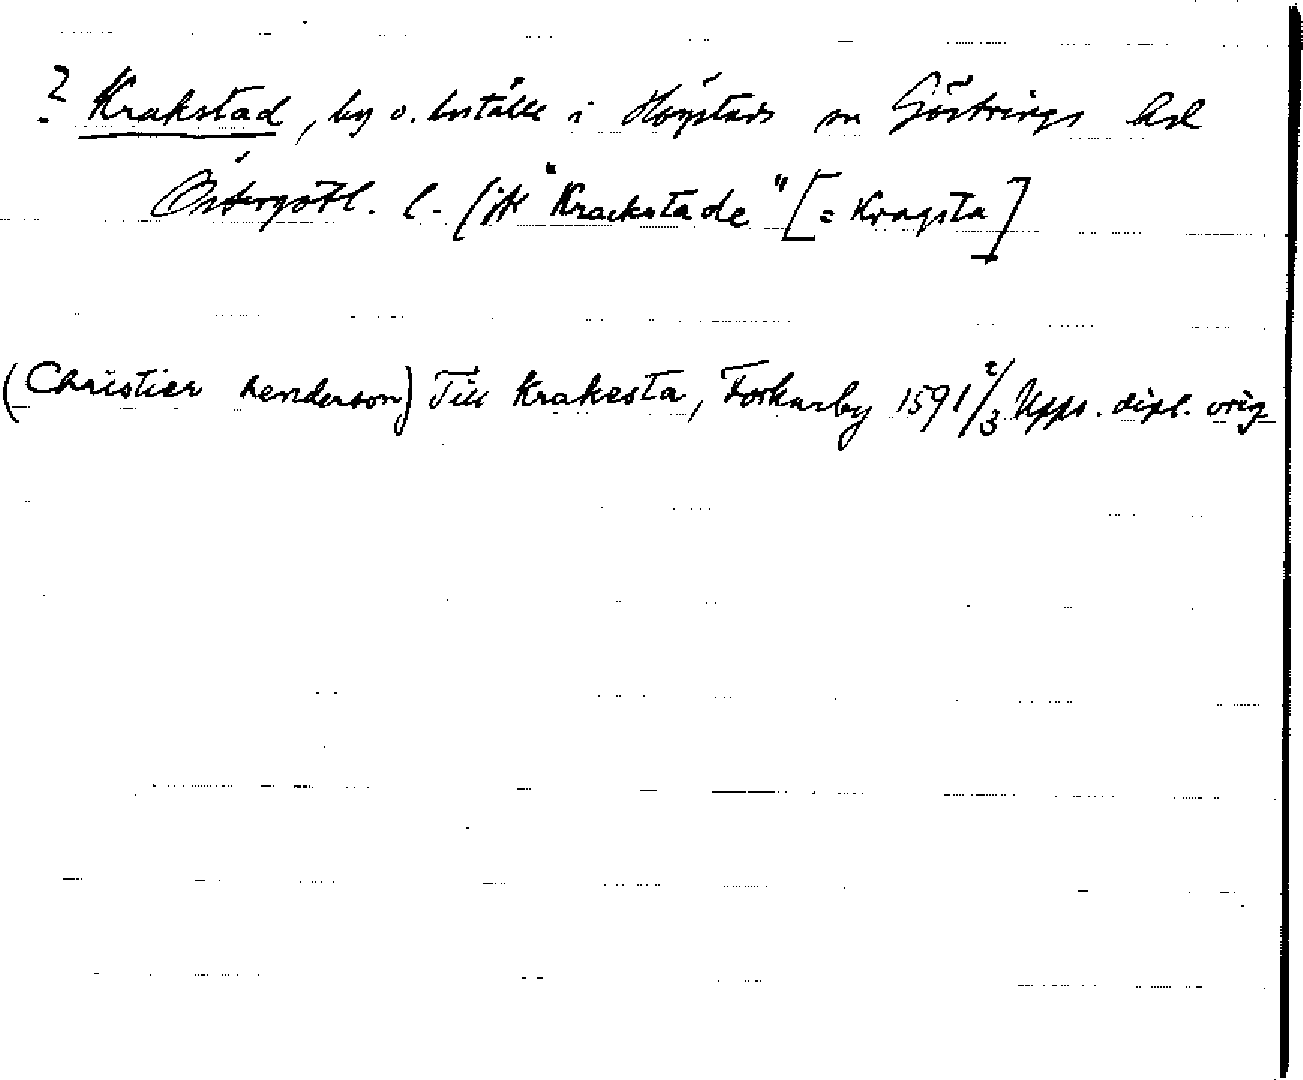 ? Krakstad, by o. boställe i Högstads sn Göstrings hd
Östergötl. l. "Krackstade" [= Kragsta]
(Christier henderson) Till Krakesta, Forkarby 1591 2/3 Upps. dipl. orig